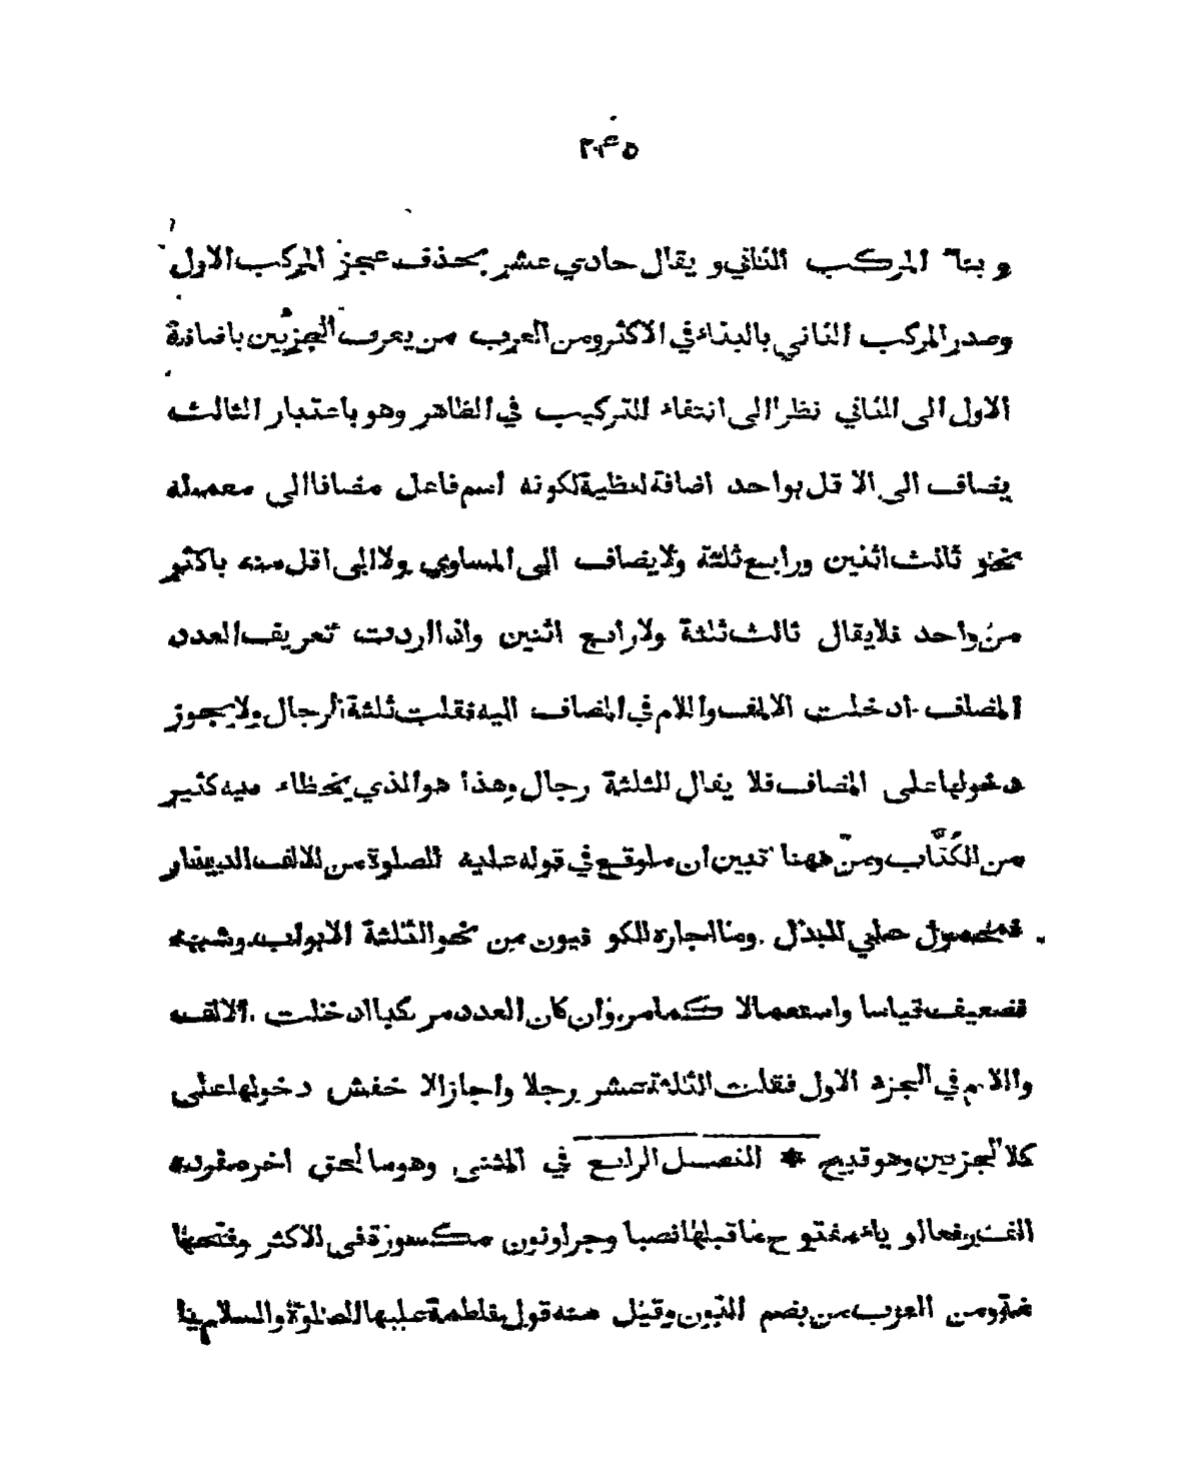 ٢٤٥
و بناء المركب الثاني و يقال حادي عشر بحذف عجز المركب الاول
وصدر المركب الثاني بالبناء في الاكثر ومن العرب من يعرب الجزئين باضافة
الاول الى الثاني نظرا الى انتفاء التركيب في الظاهر وهو باعتبار الثالث
يضاف الى الا قل بواحد اضافة لفظية لكونه اسم فاعل مضافا الى معموله
نحو ثالث اثنين ورابع ثلثة ولا يضاف الى المساوي ولا الى اقل منه باكثر
من واحد فلا يقال ثالث ثلثة ولا رابع اثنين واذا اردت تعريف العدد
المضاف ادخلت الالف واللام في المضاف اليه فقلت ثلثة الرجال ولا يجوز
دخولها على المضاف فلا يقال الثلثة رجال وهذا هو الذي يخطاء فيه كثير
من الكُتَّاب ومن ههنا تبين ان ما وقع في قوله عليه الصلوة من الالف الدينار
فمحمول على البدل وما اجازه الكو فيون من نحو الثلثة الابواب وشبهه
فضعيف قياسا واستعمالا كما مر وان كان العدد مر كبا ادخلت الالف
واللام في الجزء الاول فقلت الثلثة عشر رجلا واجاز الا خفش دخولها على
كلا الجزئين وهو قبيح * الفصل الرابع في المثنى وهو ما لحق اخر مفرده
الف رفعا او ياء مفتو ح ما قبلها نصبا وجرا ونون مكسورة في الاكثر وفتحها
لغة ومن العرب من يضم النون وقيل منه قول فاطمة عليها الصلوة والسلام يا